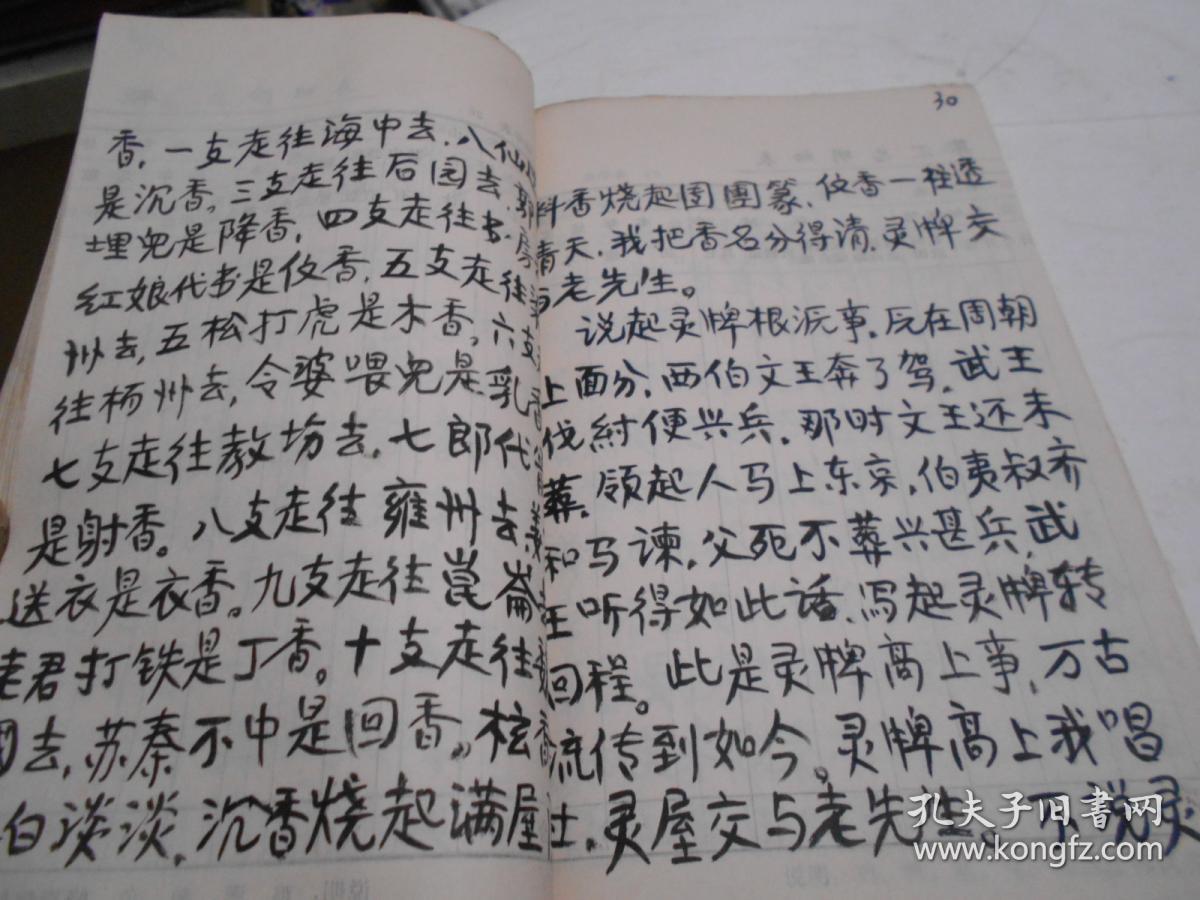 香，一支走往海中去，八仙
是沉香，三支走往后园去，郭
埋児是降香，四支走往书房
红娘代书是伩香，五支走往
州去，五松打虎是木香，六支
往杨州去，令婆喂児是乳香
七支走往教坊去，七郎代
是射香。八支走往雍州去，姜
送衣是衣香。九支走往崑崙
老君打铁是丁香。十支走往
国去，苏秦不中是回香。枟香
白淡淡，沉香烧起满屋
30
料香烧起团團篆，伩香一柱透
青天，我把香名分得清，灵牌交
与老先生。
说起灵牌根派事，厉在周朝
上面分，西伯文王奔了驾，武王
伐紂便兴兵，那时文王还未
葬，領起人马上东京，伯夷叔齐
和马谏，父死不葬兴甚兵，武
王听得如此话，写起灵牌转
回程。此是灵牌高上事，万古
流传到如今。灵牌高上我唱
灵屋交与老先生。不说灵
孔夫子旧书网
www.kongfz.com